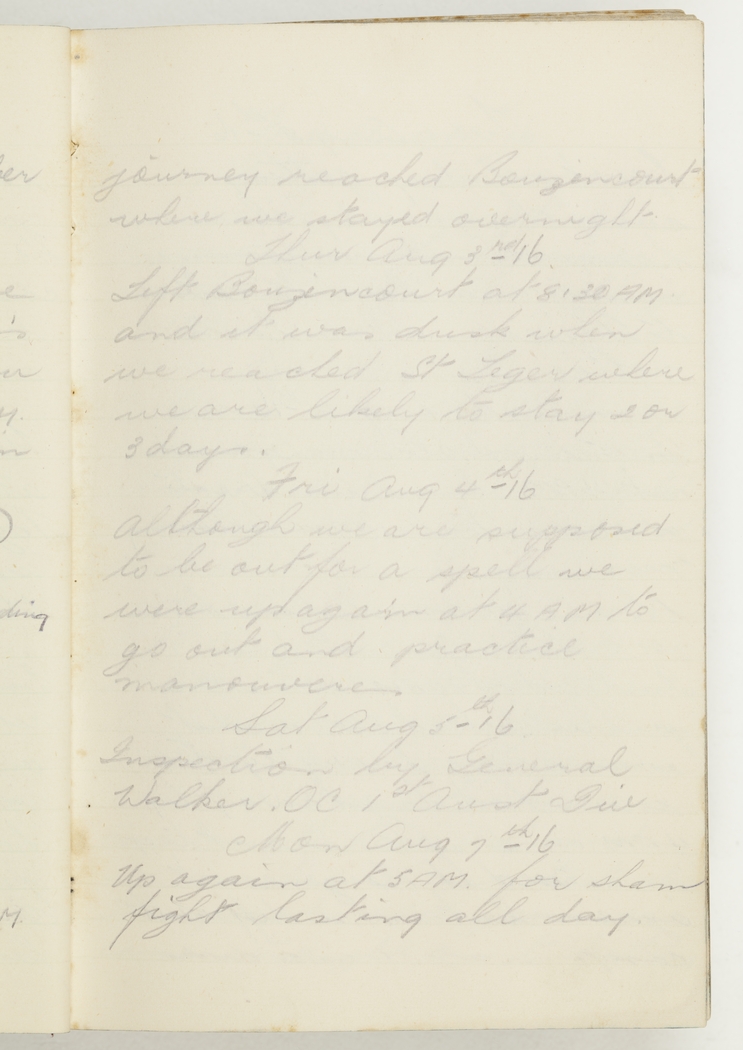 journey reached Bouzencourt
where we stayed overnight.
Thur Aug 3rd 16.
Left Bouzencourt at 8.30 AM.
and it was dusk when
we reached St Leger where
we are likely to stay 2 or
3 days.
Fri Aug 4th 16
although we are supposed
to be out for a spell we
were up again at 4 AM to
go out and practice
manouveres
Sat Aug 5th 16
Inspection by General
Walker. OC 1st Aust Div
Mon Aug 7th 16
Up again at 5 AM. for sham
fight lasting all day.